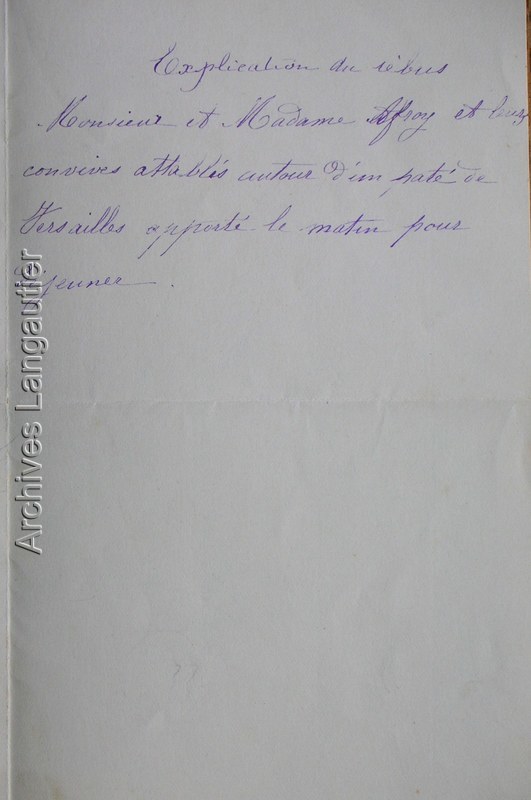 Explication du rébus
Monsieur et Madame Affroy et leurs
convives attablés autour d'un paté de
Versailles apporté le matin pour
déjeuner.
Archives Langautier